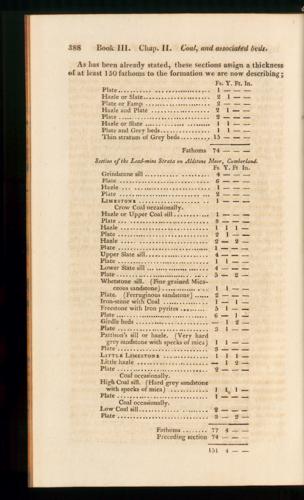 388 Book III. Chap. II. Coal, and associated beds.
As has been already stated, these sections assign a thickness
of at least 150 fathoms to the formation we are now describing;
Fs. Y. Ft. In.
Plate ........................ 1 — — —
Hazle or Slate ........................ 2 1 — —
Plate or Famp ........................ 2 — — —
Hazle and Plate ........................ 2 1 — —
Plate ........................ 2 — — —
Hazle or Slate ........................ 1 1 — —
Plate and Grey beds ........................ 1 1 — —
Thin stratum of Grey beds ........................ 15 — — —
Fathoms 74 — — —
Section of the Lead-mine Strata on Aldstone Moor, Cumberland.
Fs. Y. Ft. In.
Grindstone sill ........................ 4 — — —
Plate ........................ 6 — — —
Hazle ........................ 1 — — —
Plate ........................ 2 — — —
LIMESTONE ........................ 1 — — —
Crow Coal occasionally.
Hazle or Upper Coal sill ........................ 1 — — —
Plate ........................ 3 — — —
Hazle ........................ 1 1 1 —
Plate ........................ 2 1 — —
Hazle ........................ 2 — 2 —
Plate ........................ 1 — — —
Upper Slate sill ........................ 4 — — —
Plate ........................ 1 1 — —
Lower Slate sill ........................ 4 — — —
Plate ........................ 5 — 2 —
Whetstone sill. (Fine grained Mica-
ceous sandstone) ........................ 1 1 — —
Plate. (Ferruginous sandstone) ........................ 2 — — —
Iron-stone with Coal ........................ 1 — 1 —
Freestone with Iron pyrites ........................ 5 1 — —
Plate ........................ 6 — 1 —
Girdle beds ........................ — 1 2 —
Plate ........................ 3 1 — —
Pattison's sill or hazle. (Very hard
grey sandstone with specks of mica) 1 1 — —
Plate ........................ 3 — — —
LITTLE LIMESTONE ........................ 1 1 1 —
Little hazle ........................ — 1 2 —
Plate ........................ 2 — — —
Coal occasionally.
High Coal sill. (Hard grey sandstone
with specks of mica) ........................ 1 1 1 —
Plate ........................ 1 — — —
Coal occasionally.
Low Coal sill ........................ 2 — — —
Plate ........................ 3 — 2 —
Fathoms ........ 77 4 — —
Preceding section 74 — — —
151 4 — —